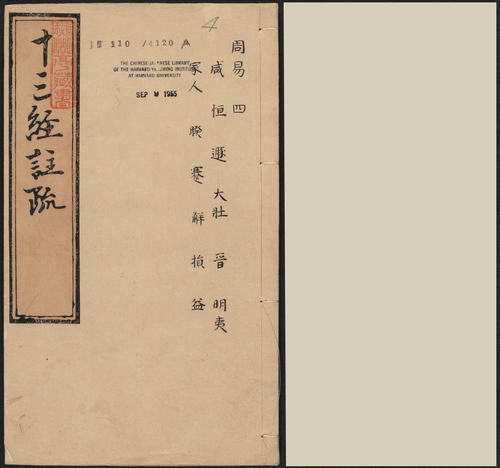 周易 四
咸 恒 遯 大壯 晉 明夷
家人 睽 蹇 解 損 益
4
110 /4120 A
THE CHINESE-JAPANESE LIBRARY
OF THE HARVARD-YENCHING INSTITUTE
AT HARVARD UNIVERSITY
SEP 9 1965
十三經註疏